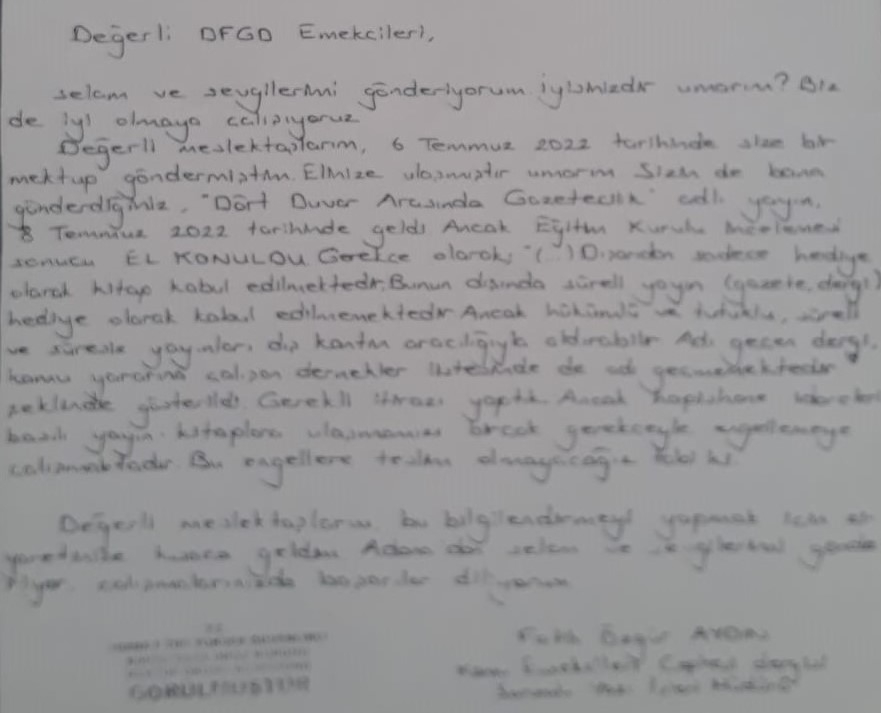 Değerli DFGD Emekçileri,
selam ve sevgilerimi gönderiyorum. İyisinizdir umarım? Biz
de iyi olmaya çalışıyoruz
Değerli meslektaşlarım, 6 Temmuz 2022 tarihinde size bir
mektup göndermiştim. Elinize ulaşmıştır umarım Sizin de bana
gönderdiğiniz, "Dört Duvar Arasında Gazetecilik" adlı yayın,
8 Temmuz 2022 tarihinde geldi Ancak Eğitim Kurulu İncelemesi
sonucu EL KONULDU Gerekçe olarak; "(...) Dışarıdan sadece hediye
olarak kitap kabul edilmektedir. Bunun dışında süreli yayın (gazete, dergi)
hediye olarak kabul edilmemektedir Ancak hükümlü ve tutuklu, süreli
ve süresiz yayınları dış kantin aracılığıyla aldırabilir Adı geçen dergi,
kamu yararına çalışan dernekler listesinde de adı geçmemektedir"
şeklinde gösterildi Gerekli itirazı yaptık Ancak hapishane idareleri
basılı yayın, kitaplara ulaşmamızı birçok gerekçeyle engellemeye
çalışmaktadır Bu engellere teslim olmayacağız tabi ki
Değerli meslektaşlarım, bu bilgilendirmeyi yapmak için
geldim selam ve sevgilerimi gönde
riyor, çalışmalarınızda başarılar diliyorum
AYDIN
GÖRÜLMÜŞTÜR